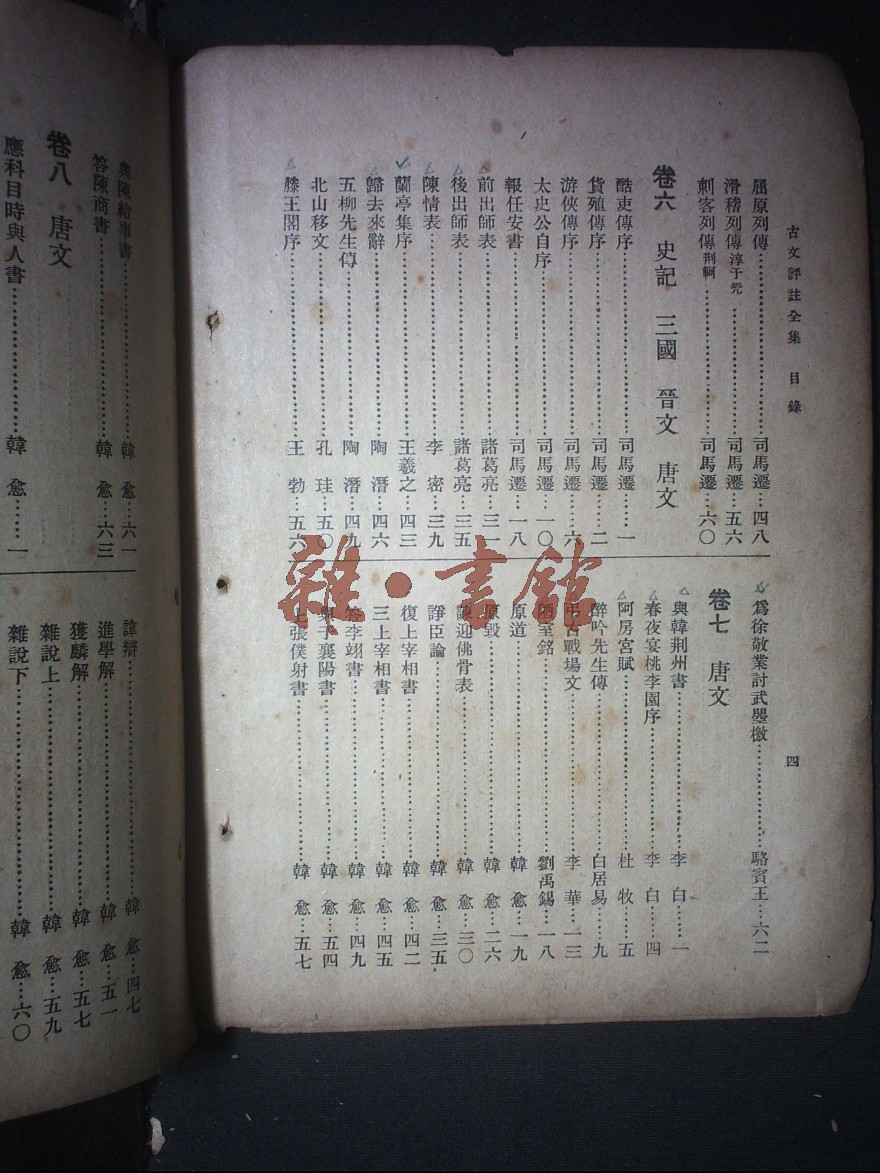 古文評註全集 目錄
四
屈原列傳……司馬遷…四八
滑稽列傳淳于髡……司馬遷…五六
刺客列傳荆軻……司馬遷…六〇
卷六 史記 三國 晉文 唐文
酷吏傳序……司馬遷…一
貨殖傳序……司馬遷…二
游俠傳序……司馬遷…六
太史公自序……司馬遷…一〇
報任安書……司馬遷…一八
前出師表……諸葛亮…三一
後出師表……諸葛亮…三五
陳情表……李密…三九
蘭亭集序……王羲之…四三
歸去來辭……陶潛…四六
五柳先生傳……陶潛…四九
北山移文……孔珪…五〇
滕王閣序……王勃…五六
爲徐敬業討武曌檄……駱賓王…六二
卷七 唐文
與韓荆州書……李白……一
春夜宴桃李園序……李白…四
阿房宮賦……杜牧…五
醉吟先生傳……白居易…九
弔古戰場文……李華…一三
陋室銘……劉禹錫…一八
原道……韓愈…一九
原毀……韓愈…二六
諫迎佛骨表……韓愈…三〇
諍臣論……韓愈…三五
復上宰相書……韓愈…四二
三上宰相書……韓愈…四五
答李翊書……韓愈…四九
與于襄陽書……韓愈…五四
上張僕射書……韓愈…五七
與陳給事書……韓愈…六一
答陳商書……韓愈…六三
卷八 唐文
應科目時與人書……韓愈……一
諱辯……韓愈…四七
進學解……韓愈…五一
獲麟解……韓愈…五七
雜說上……韓愈…五九
雜說下……韓愈…六〇
雜·書館